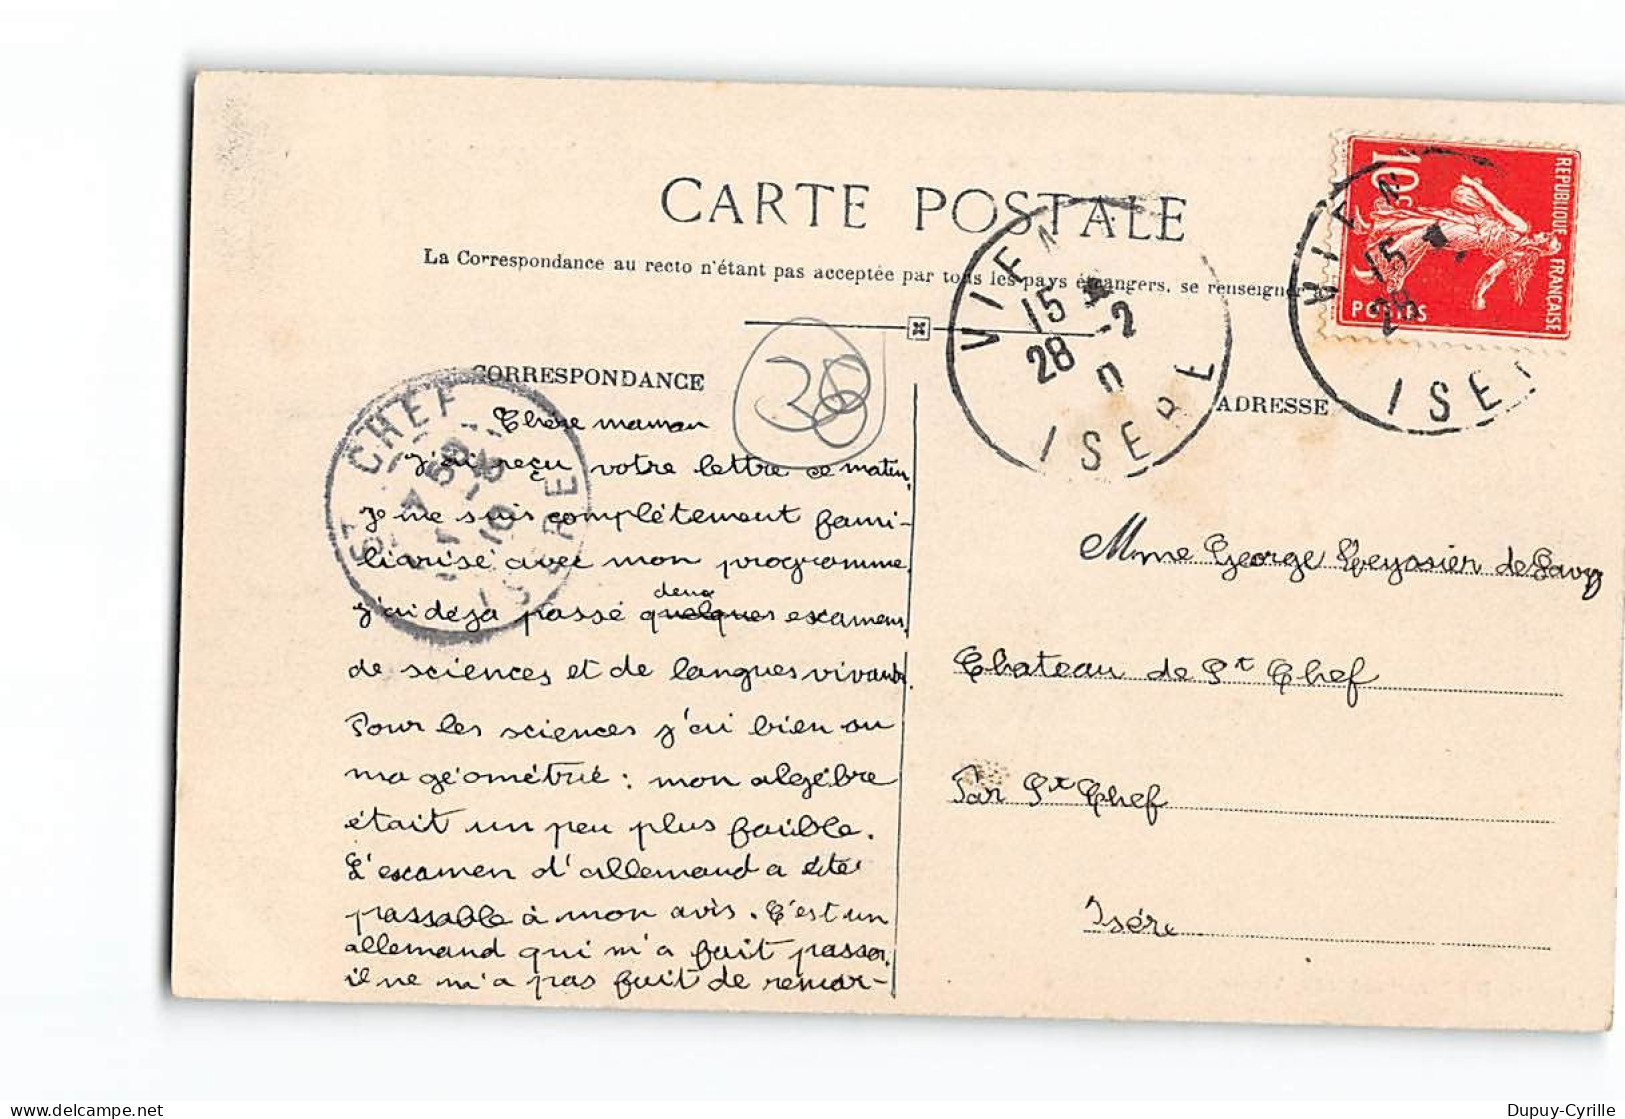 CARTE POSTALE
La Correspondance au recto n'étant pas acceptée par tous les pays étrangers, se renseigner
CORRESPONDANCE
Chère maman
J'ai reçu votre lettre ce matin.
Je me suis complétement fami-
liarisé avec mon programme.
deux
J'ai déja passé quelques examens.
de sciences et de langues vivantes.
Pour les sciences j'ai bien su
ma géométrie : mon algébre
était un peu plus faible.
L'examen d'allemand a été
passable à mon avis. C'est un
allemand qui m'a fait passer.
il ne m'a pas fait de remar-
ADRESSE
Mme George Teyssier de Savy
Chateau de St Chef
Par St Chef
Isére
38
VIEN
15
28 -2
ISERE
VIEN
15
28
ISE
ST CHEF
7 50
10
ISERE
10c
REPUBLIQUE FRANÇAISE
POSTES
Dupuy-Cyrille